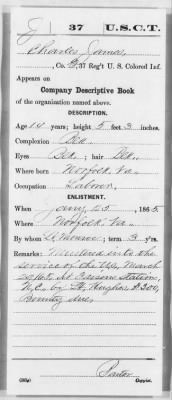 J 37 U.S.C.T.
Charles James
, Co. B, 37 Reg't U. S. Colored Inf.
Appears on
Company Descriptive Book
of the organization named above.
DESCRIPTION.
Age 14 years; height 5 feet 3 inches.
Complexion Blk
Eyes Blk.; hair Blk.
Where born Norfolk, Va
Occupation Laborer
ENLISTMENT.
When Jany 25, 1865.
Where Norfolk, Va.
By whom ; term 3 y'rs.
Remarks: Mustered into the
service of the U.S. March
20/65. at station,
N.C. by Lt. Hughes. $300,
Bounty due.
Copyist.